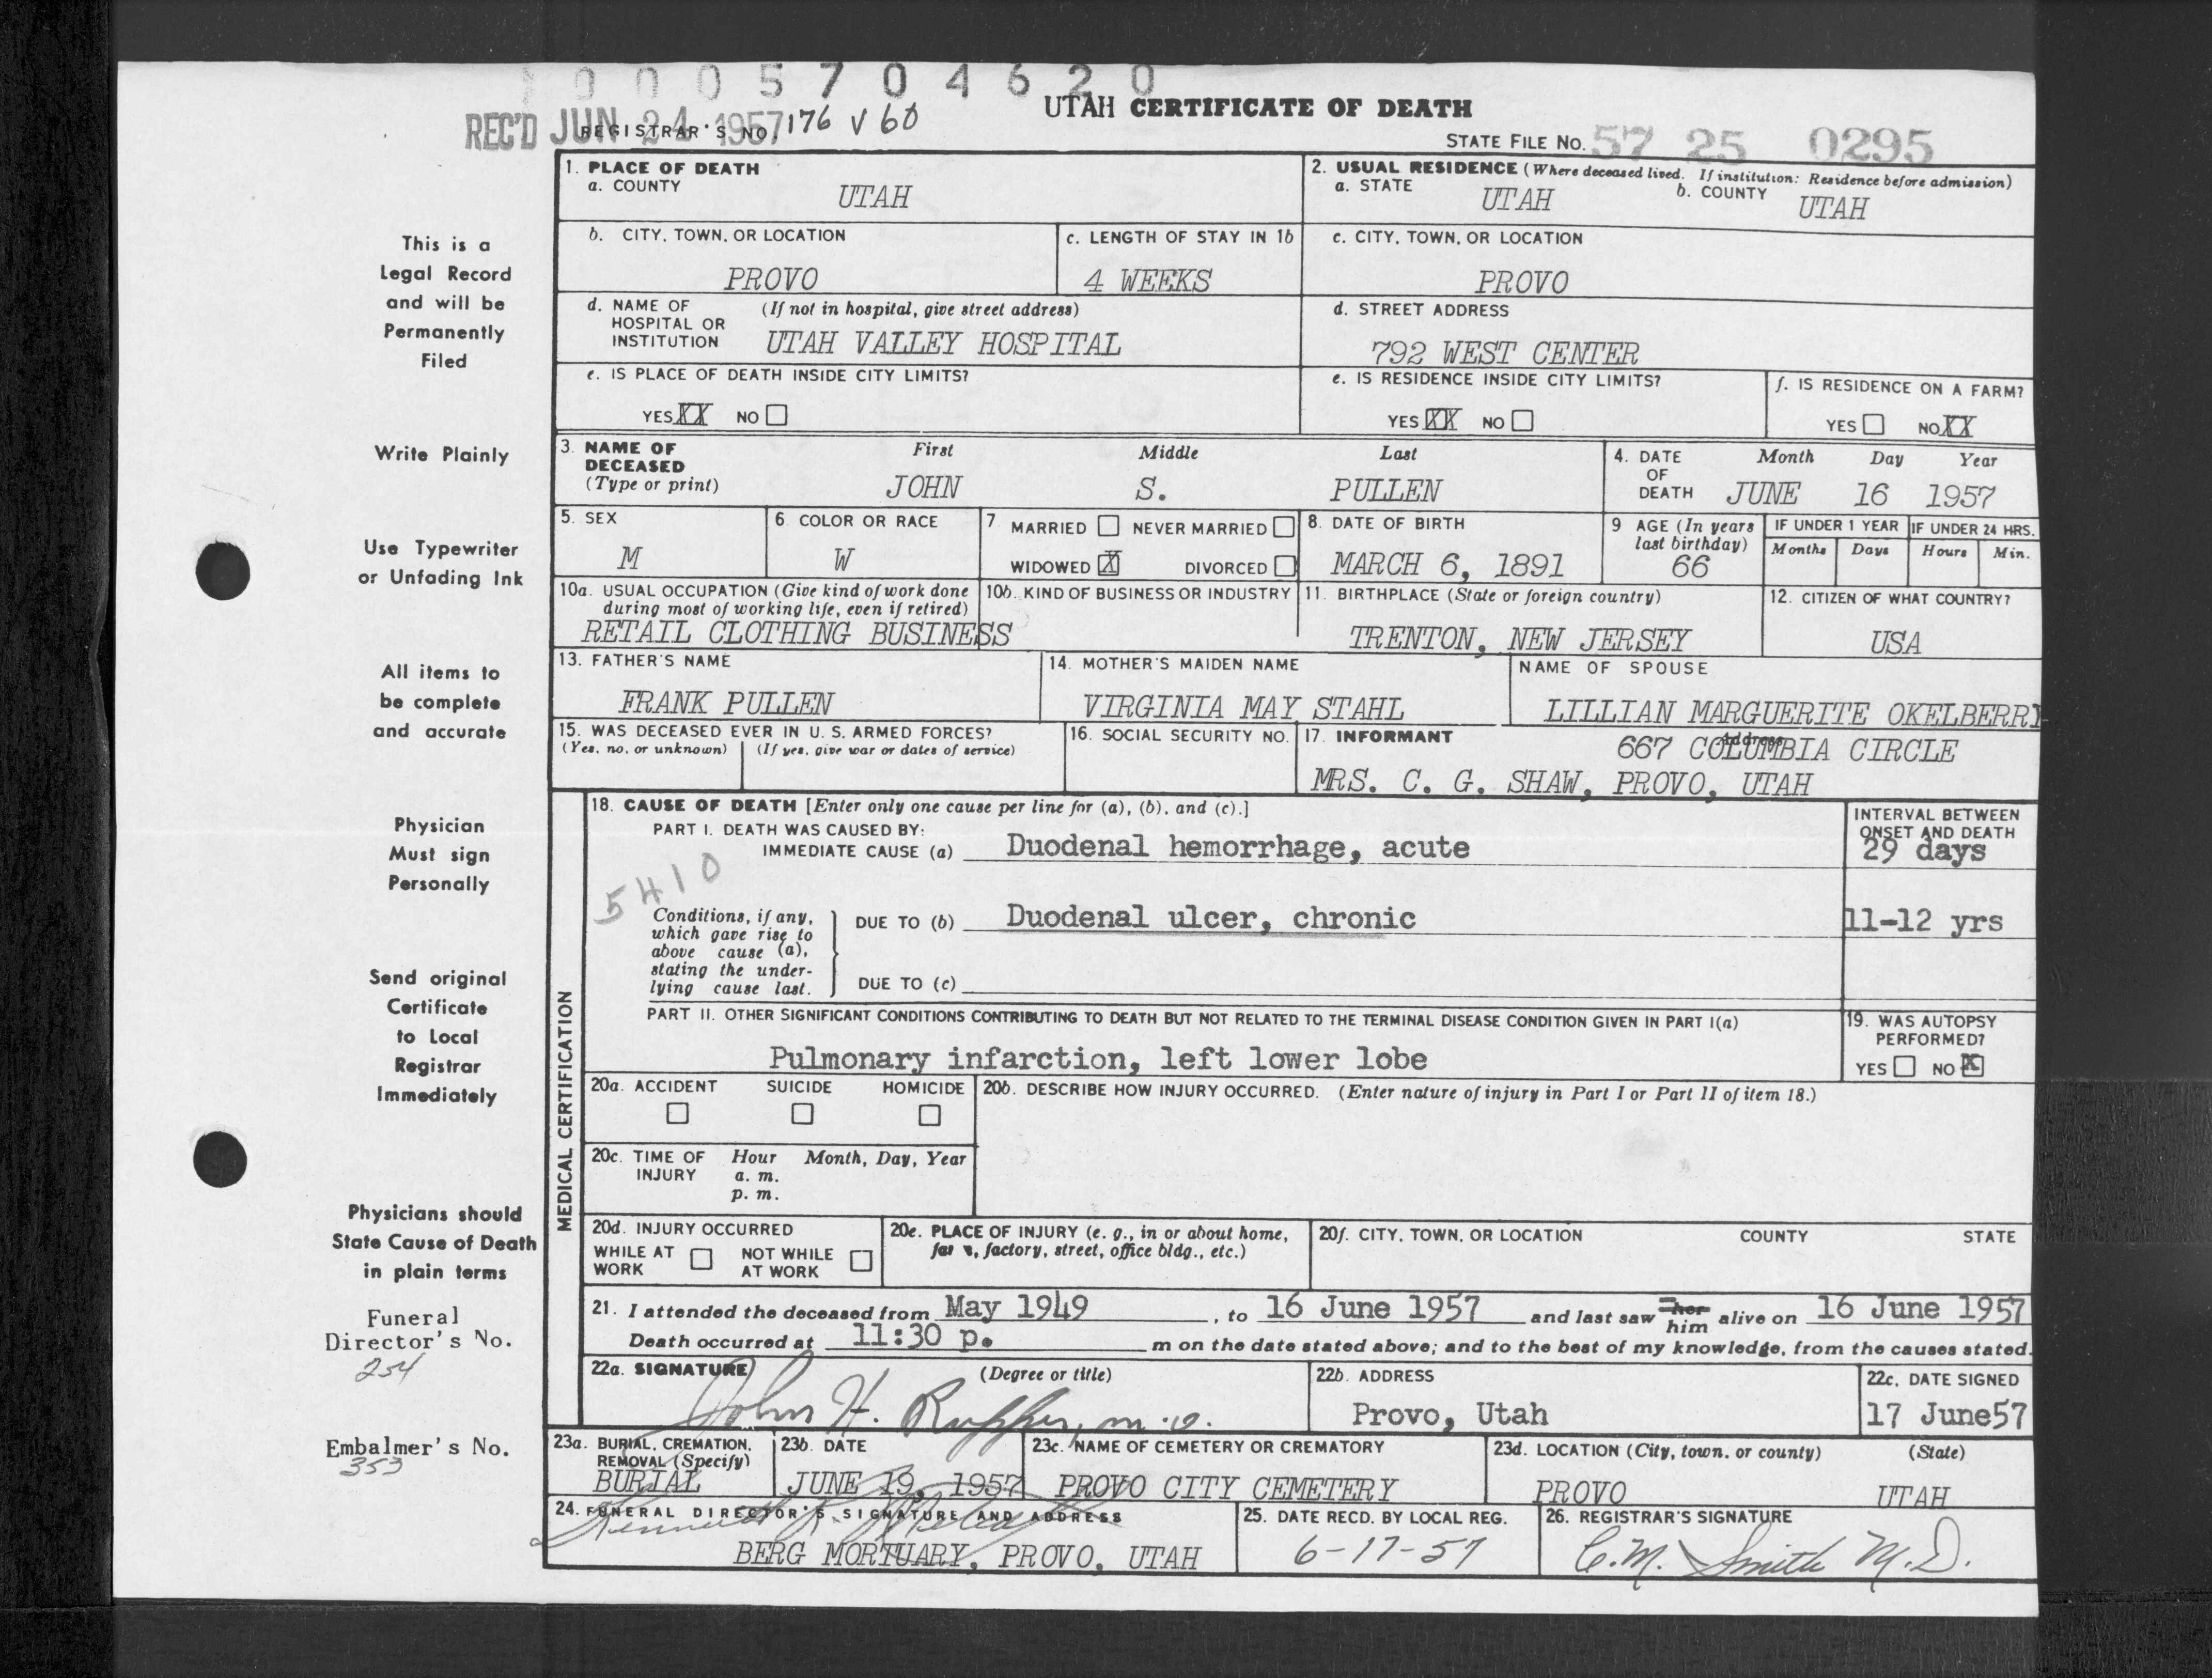 0 0 0 5 7 0 4 6 2 0
UTAH CERTIFICATE OF DEATH
REC'D JUN 24 1957
REGISTRAR'S NO. 176 V 60
STATE FILE NO. 57 25 0295
This is a
Legal Record
and will be
Permanently
Filed
Write Plainly
Use Typewriter
or Unfading Ink
All items to
be complete
and accurate
Physician
Must sign
Personally
Send original
Certificate
to Local
Registrar
Immediately
Physicians should
State Cause of Death
in plain terms
Funeral
Director's No.
254
Embalmer's No.
353
1. PLACE OF DEATH
a. COUNTY
UTAH
2. USUAL RESIDENCE (Where deceased lived. If institution: Residence before admission)
a. STATE UTAH b. COUNTY UTAH
b. CITY, TOWN, OR LOCATION
PROVO
c. LENGTH OF STAY IN 1b
4 WEEKS
c. CITY, TOWN, OR LOCATION
PROVO
d. NAME OF HOSPITAL OR INSTITUTION (If not in hospital, give street address)
UTAH VALLEY HOSPITAL
d. STREET ADDRESS
792 WEST CENTER
e. IS PLACE OF DEATH INSIDE CITY LIMITS?
YES XX NO
e. IS RESIDENCE INSIDE CITY LIMITS?
YES XX NO
f. IS RESIDENCE ON A FARM?
YES NO XX
3. NAME OF DECEASED (Type or print)
First Middle Last
JOHN S. PULLEN
4. DATE OF DEATH
Month Day Year
JUNE 16 1957
5. SEX
M
6 COLOR OR RACE
W
7 MARRIED NEVER MARRIED
WIDOWED X DIVORCED
8. DATE OF BIRTH
MARCH 6, 1891
9 AGE (In years last birthday)
66
IF UNDER 1 YEAR
Months Days
IF UNDER 24 HRS.
Hours Min.
10a. USUAL OCCUPATION (Give kind of work done during most of working life, even if retired)
10b. KIND OF BUSINESS OR INDUSTRY
RETAIL CLOTHING BUSINESS
11. BIRTHPLACE (State or foreign country)
TRENTON, NEW JERSEY
12. CITIZEN OF WHAT COUNTRY?
USA
13. FATHER'S NAME
FRANK PULLEN
14. MOTHER'S MAIDEN NAME
VIRGINIA MAY STAHL
NAME OF SPOUSE
LILLIAN MARGUERITE OKELBERRY
15. WAS DECEASED EVER IN U. S. ARMED FORCES?
(Yes, no, or unknown) (If yes, give war or dates of service)
16. SOCIAL SECURITY NO.
17. INFORMANT Address
667 COLUMBIA CIRCLE
MRS. C. G. SHAW, PROVO, UTAH
MEDICAL CERTIFICATION
18. CAUSE OF DEATH [Enter only one cause per line for (a), (b), and (c).]
PART I. DEATH WAS CAUSED BY:
IMMEDIATE CAUSE (a) Duodenal hemorrhage, acute
INTERVAL BETWEEN ONSET AND DEATH
29 days
5410
Conditions, if any, which gave rise to above cause (a), stating the underlying cause last.
DUE TO (b) Duodenal ulcer, chronic
11-12 yrs
DUE TO (c)
PART II. OTHER SIGNIFICANT CONDITIONS CONTRIBUTING TO DEATH BUT NOT RELATED TO THE TERMINAL DISEASE CONDITION GIVEN IN PART I(a)
Pulmonary infarction, left lower lobe
19. WAS AUTOPSY PERFORMED?
YES NO X
20a. ACCIDENT SUICIDE HOMICIDE
20b. DESCRIBE HOW INJURY OCCURRED. (Enter nature of injury in Part I or Part II of item 18.)
20c. TIME OF INJURY Hour Month, Day, Year
a. m.
p. m.
20d. INJURY OCCURRED
WHILE AT WORK NOT WHILE AT WORK
20e. PLACE OF INJURY (e. g., in or about home, factory, street, office bldg., etc.)
20f. CITY, TOWN, OR LOCATION COUNTY STATE
21. I attended the deceased from May 1949, to 16 June 1957 and last saw her him alive on 16 June 1957
Death occurred at 11:30 p. m on the date stated above; and to the best of my knowledge, from the causes stated.
22a. SIGNATURE (Degree or title)
John H. Rupper, M.D.
22b. ADDRESS
Provo, Utah
22c. DATE SIGNED
17 June57
23a. BURIAL, CREMATION, REMOVAL (Specify)
BURIAL
23b. DATE
JUNE 19, 1957
23c. NAME OF CEMETERY OR CREMATORY
PROVO CITY CEMETERY
23d. LOCATION (City, town, or county) (State)
PROVO UTAH
24. FUNERAL DIRECTOR'S SIGNATURE AND ADDRESS
BERG MORTUARY, PROVO, UTAH
25. DATE RECD. BY LOCAL REG.
6-17-57
26. REGISTRAR'S SIGNATURE
C.M. Smith M.D.